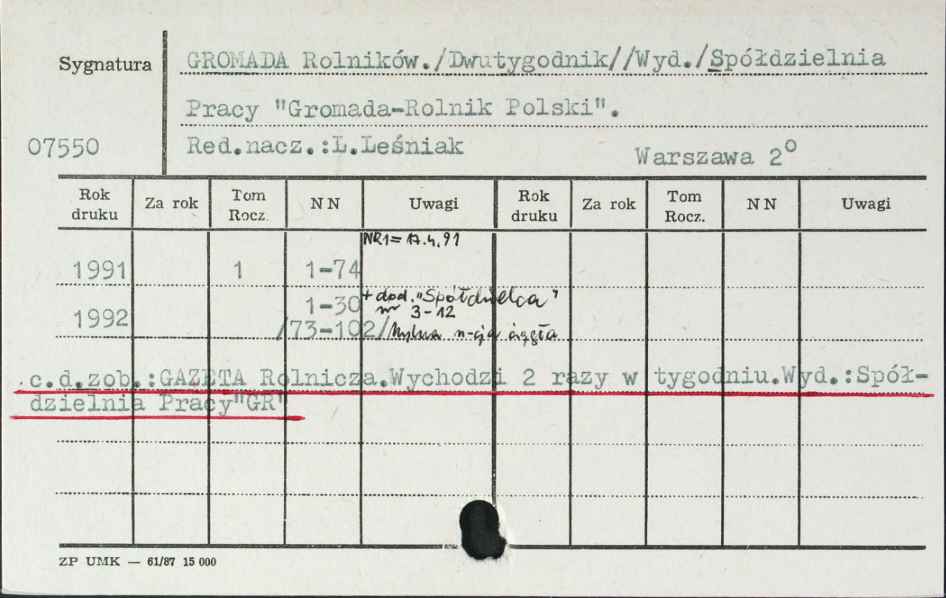 Sygnatura
GROMADA Rolników./Dwutygodnik//Wyd./Spółdzielnia
Pracy "Gromada-Rolnik Polski".
07550
Red.nacz.:L.Leśniak
Warszawa 2°
Rok druku Za rok Tom Rocz. N N Uwagi Rok druku Za rok Tom Rocz. N N Uwagi
NR1 = 17.4.91
1991 1 1-74
1-30 + dod. "Spółdzielca"
1992 nr 3-12
/73-102/ Mylna n-cja ciągła
c.d.zob.:GAZETA Rolnicza.Wychodzi 2 razy w tygodniu.Wyd.:Spół-
dzielnia Pracy"GR"
ZP UMK — 61/87 15 000